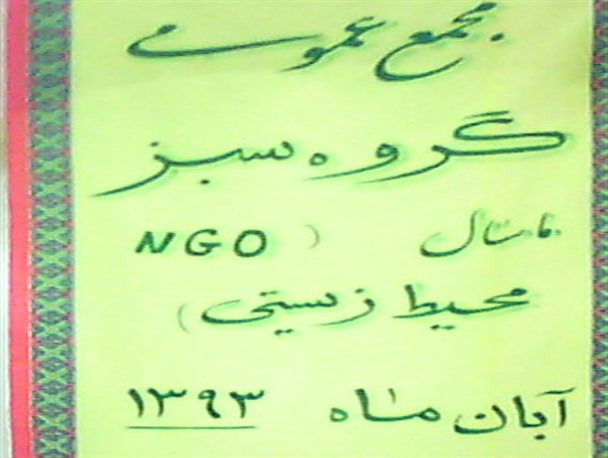 مجمع عمومی
گروه سبز
مامتال ( NGO
محیط زیستی)
آبان ماه ۱۳۹۳